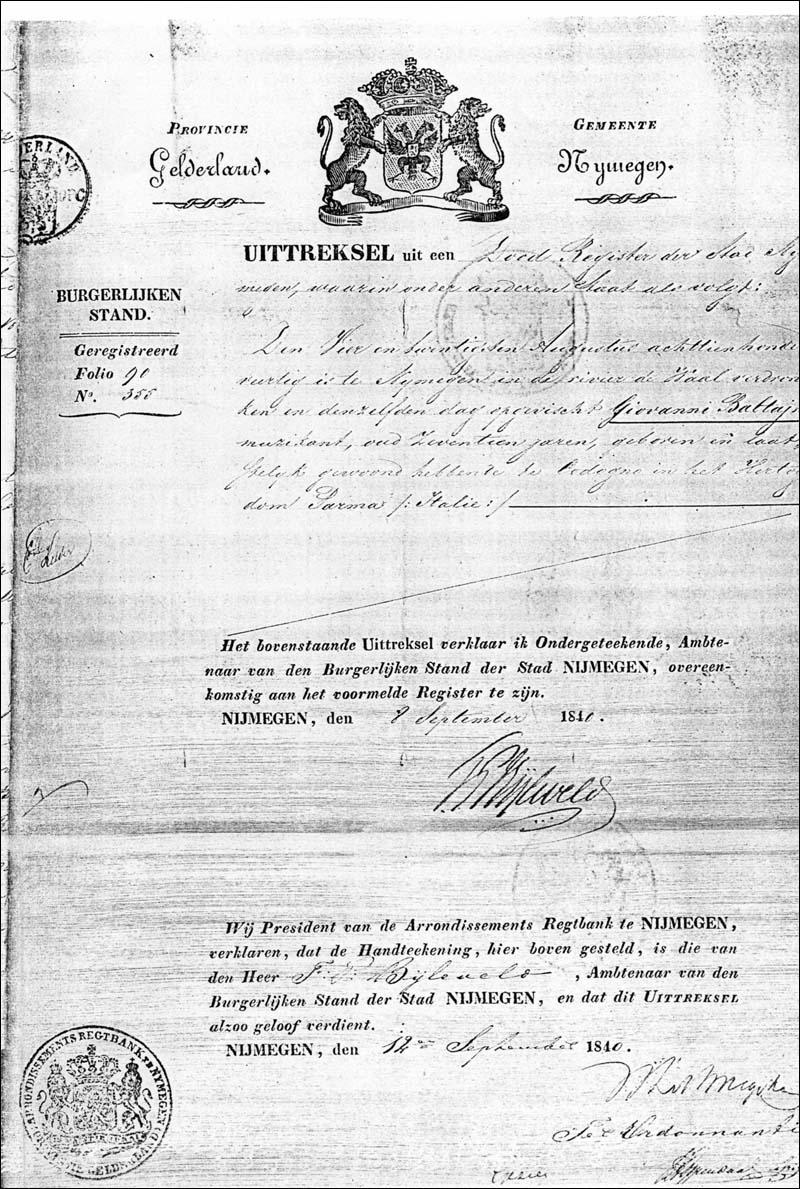 PROVINCIE
Gelderland.
GEMEENTE
Nymegen.
UITTREKSEL uit een Dood Register der Stad Ny
megen, waarin onder anderen staat als volgt:
BURGERLIJKEN
STAND.
Geregistreerd
Folio 90
No. 355
Den Vier en twintigsten Augustus achttienhonde
veertig is te Nymegen in de rivier de Waal verdron
ken en denzelfden dag opgevischt Giovanni Battaj
muzikant, oud Zeventien jaren, geboren en laats
telyk gewoond hebbende te Bedogna in het Hertog
dom Parma /: Italie :/
Het bovenstaande Uittreksel verklaar ik Ondergeteekende, Ambte-
naar van den Burgerlijken Stand der Stad NIJMEGEN, overeen-
komstig aan het voormelde Register te zijn.
NIJMEGEN, den 9 September 1840.
Bijleveld
Wij President van de Arrondissements Regtbank te NIJMEGEN,
verklaren, dat de Handteekening, hier boven gesteld, is die van
den Heer F. P. Bijleveld, Ambtenaar van den
Burgerlijken Stand der Stad NIJMEGEN, en dat dit UITTREKSEL
alzoo geloof verdient.
NIJMEGEN, den 12en September 1840.
Ter Ordonnanti
ARRONDISSEMENTS REGTBANK TE NYMEGEN
GELDERLAND